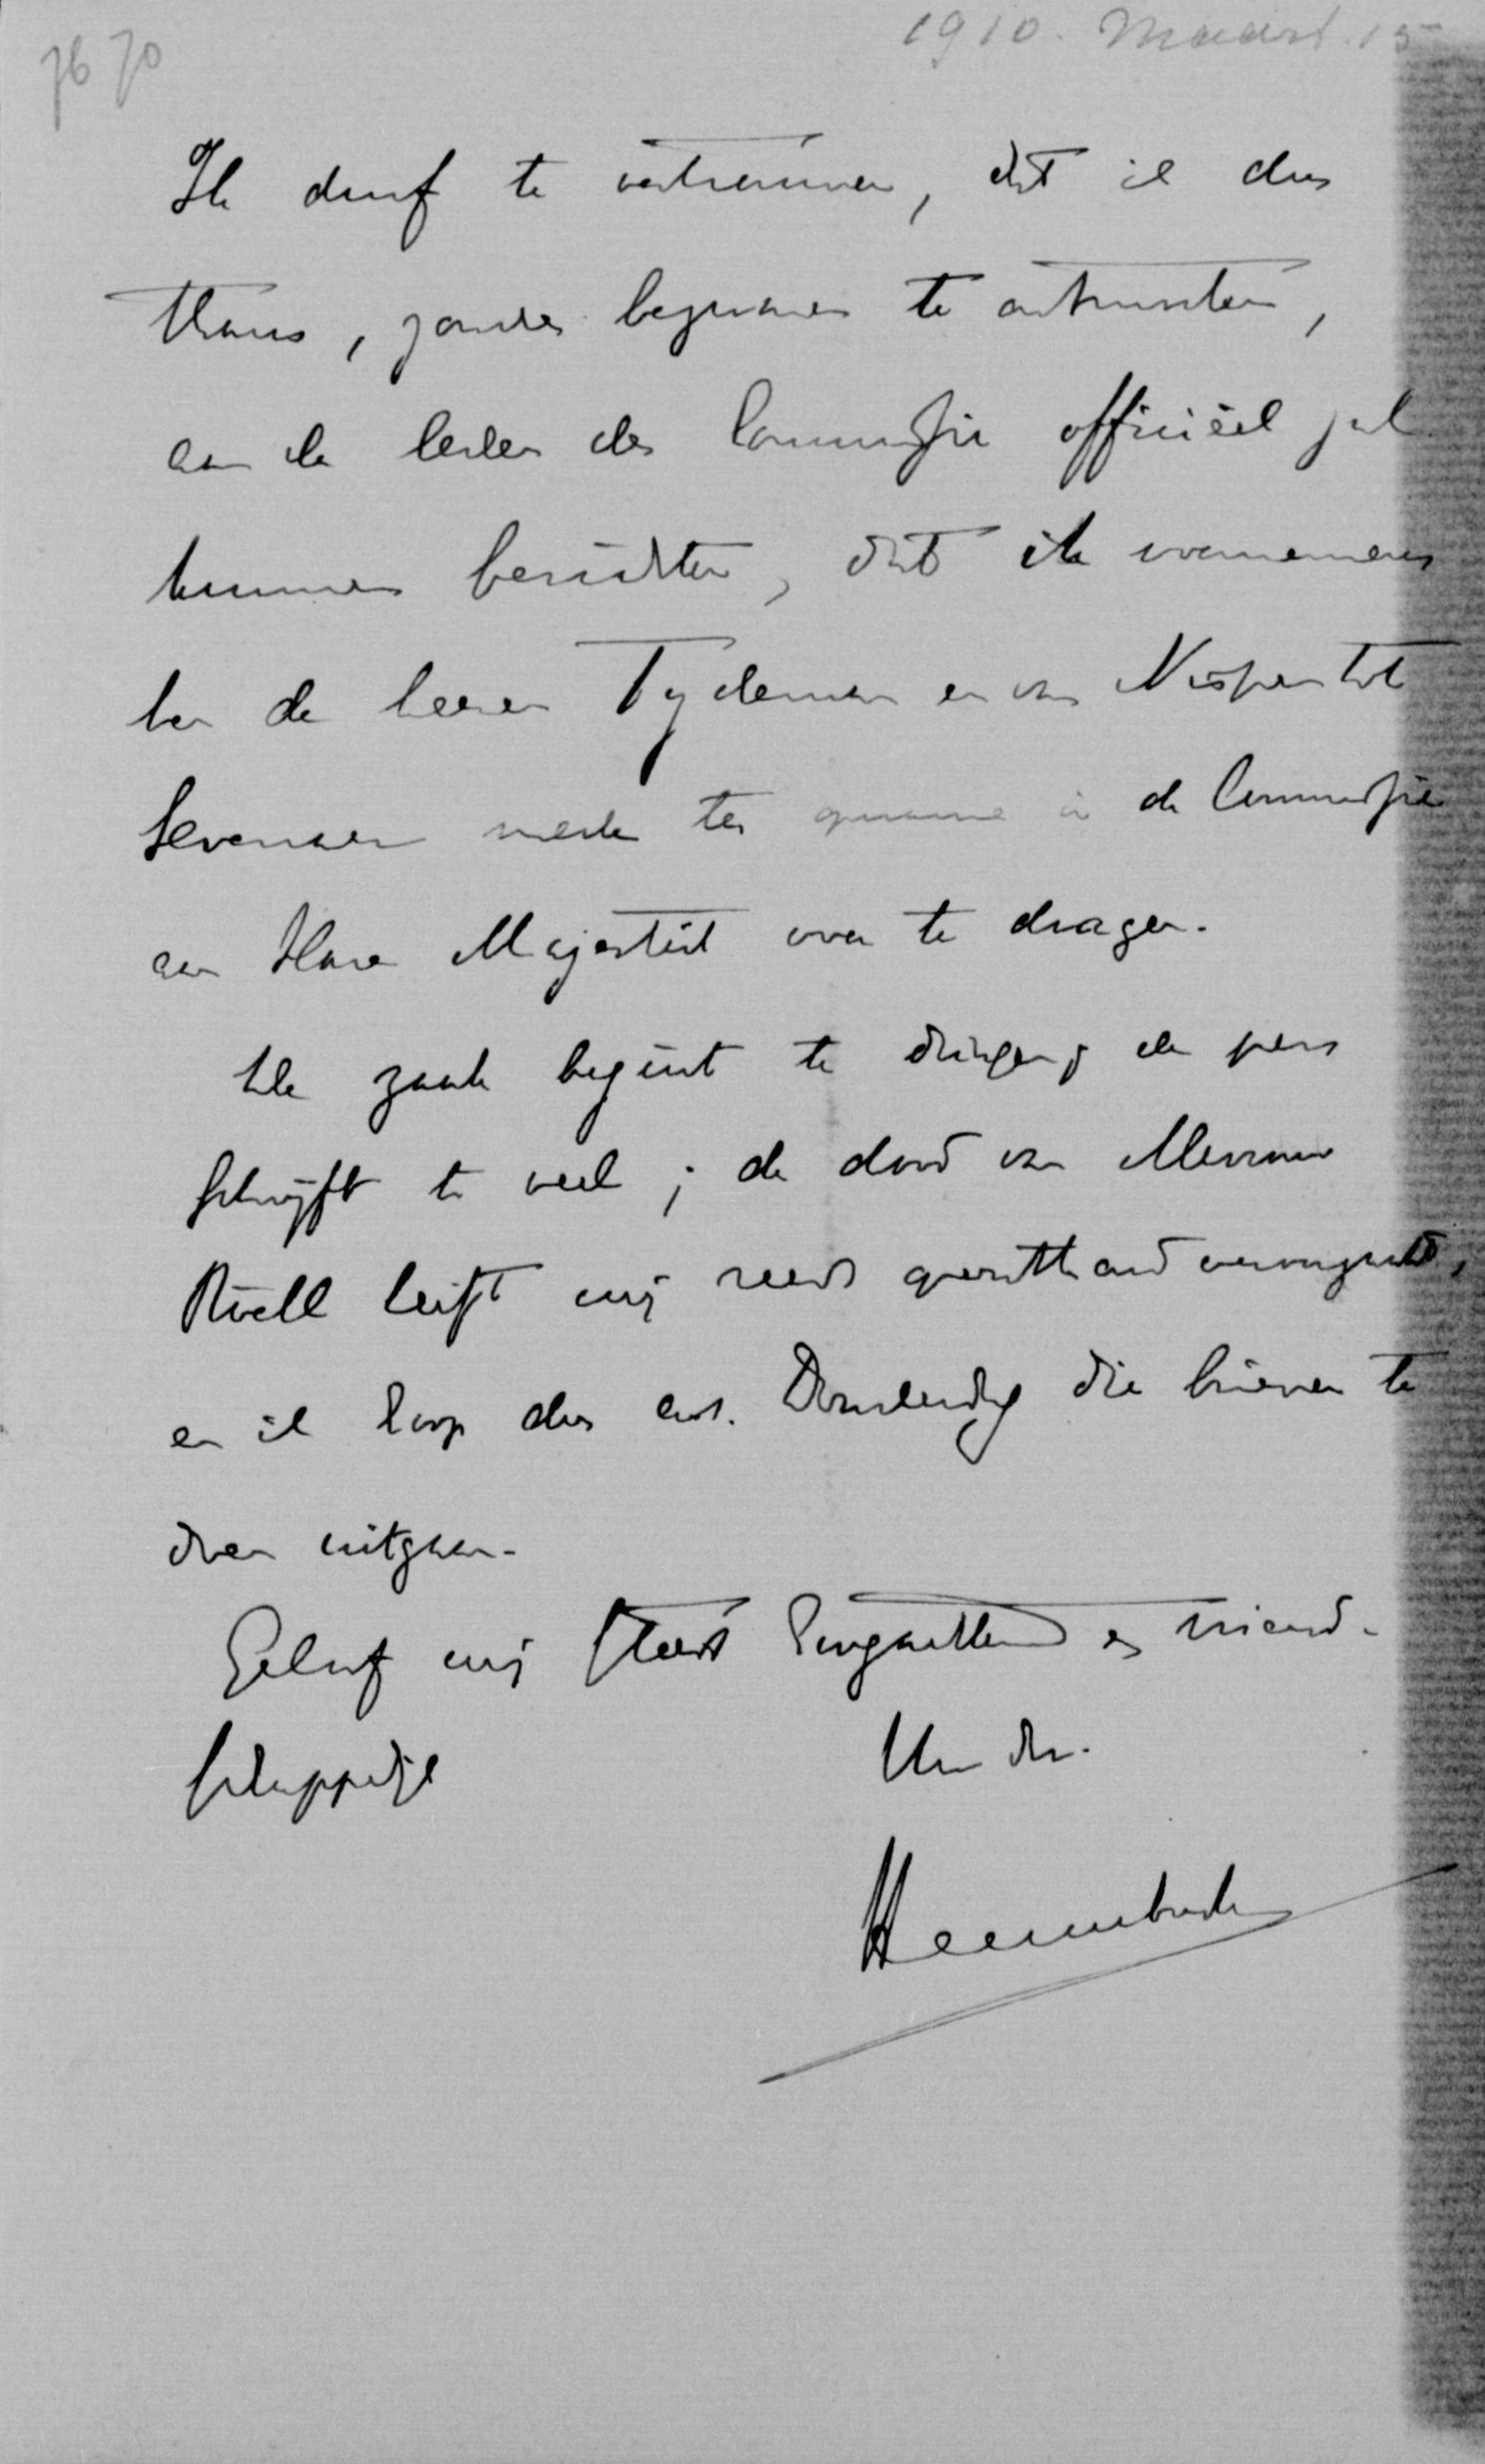 1910. Maart. 15
7670
Ik durf te vertrouwen, dat ik dus
thans, zonder bezwaren te ontmoeten,
aan de leden der Commissie officieel zal
kunnen berichten, dat ik voornemens
ben de heeren Tydeman en van Nispen tot
Sevenaer mede ter in de Commissie
aan Hare Majesteit voor te dragen.
De zaak begint te dringen; de pers
schrijft te veel; de dood van Mevrouw
Röell heeft mij reeds
en ik hoop dus aans. Donderdag die brieven te
doen uitgaan.
Geloof mij steeds hoogachtend en vriend-
schappelijk Uw dr.
Heemskerk